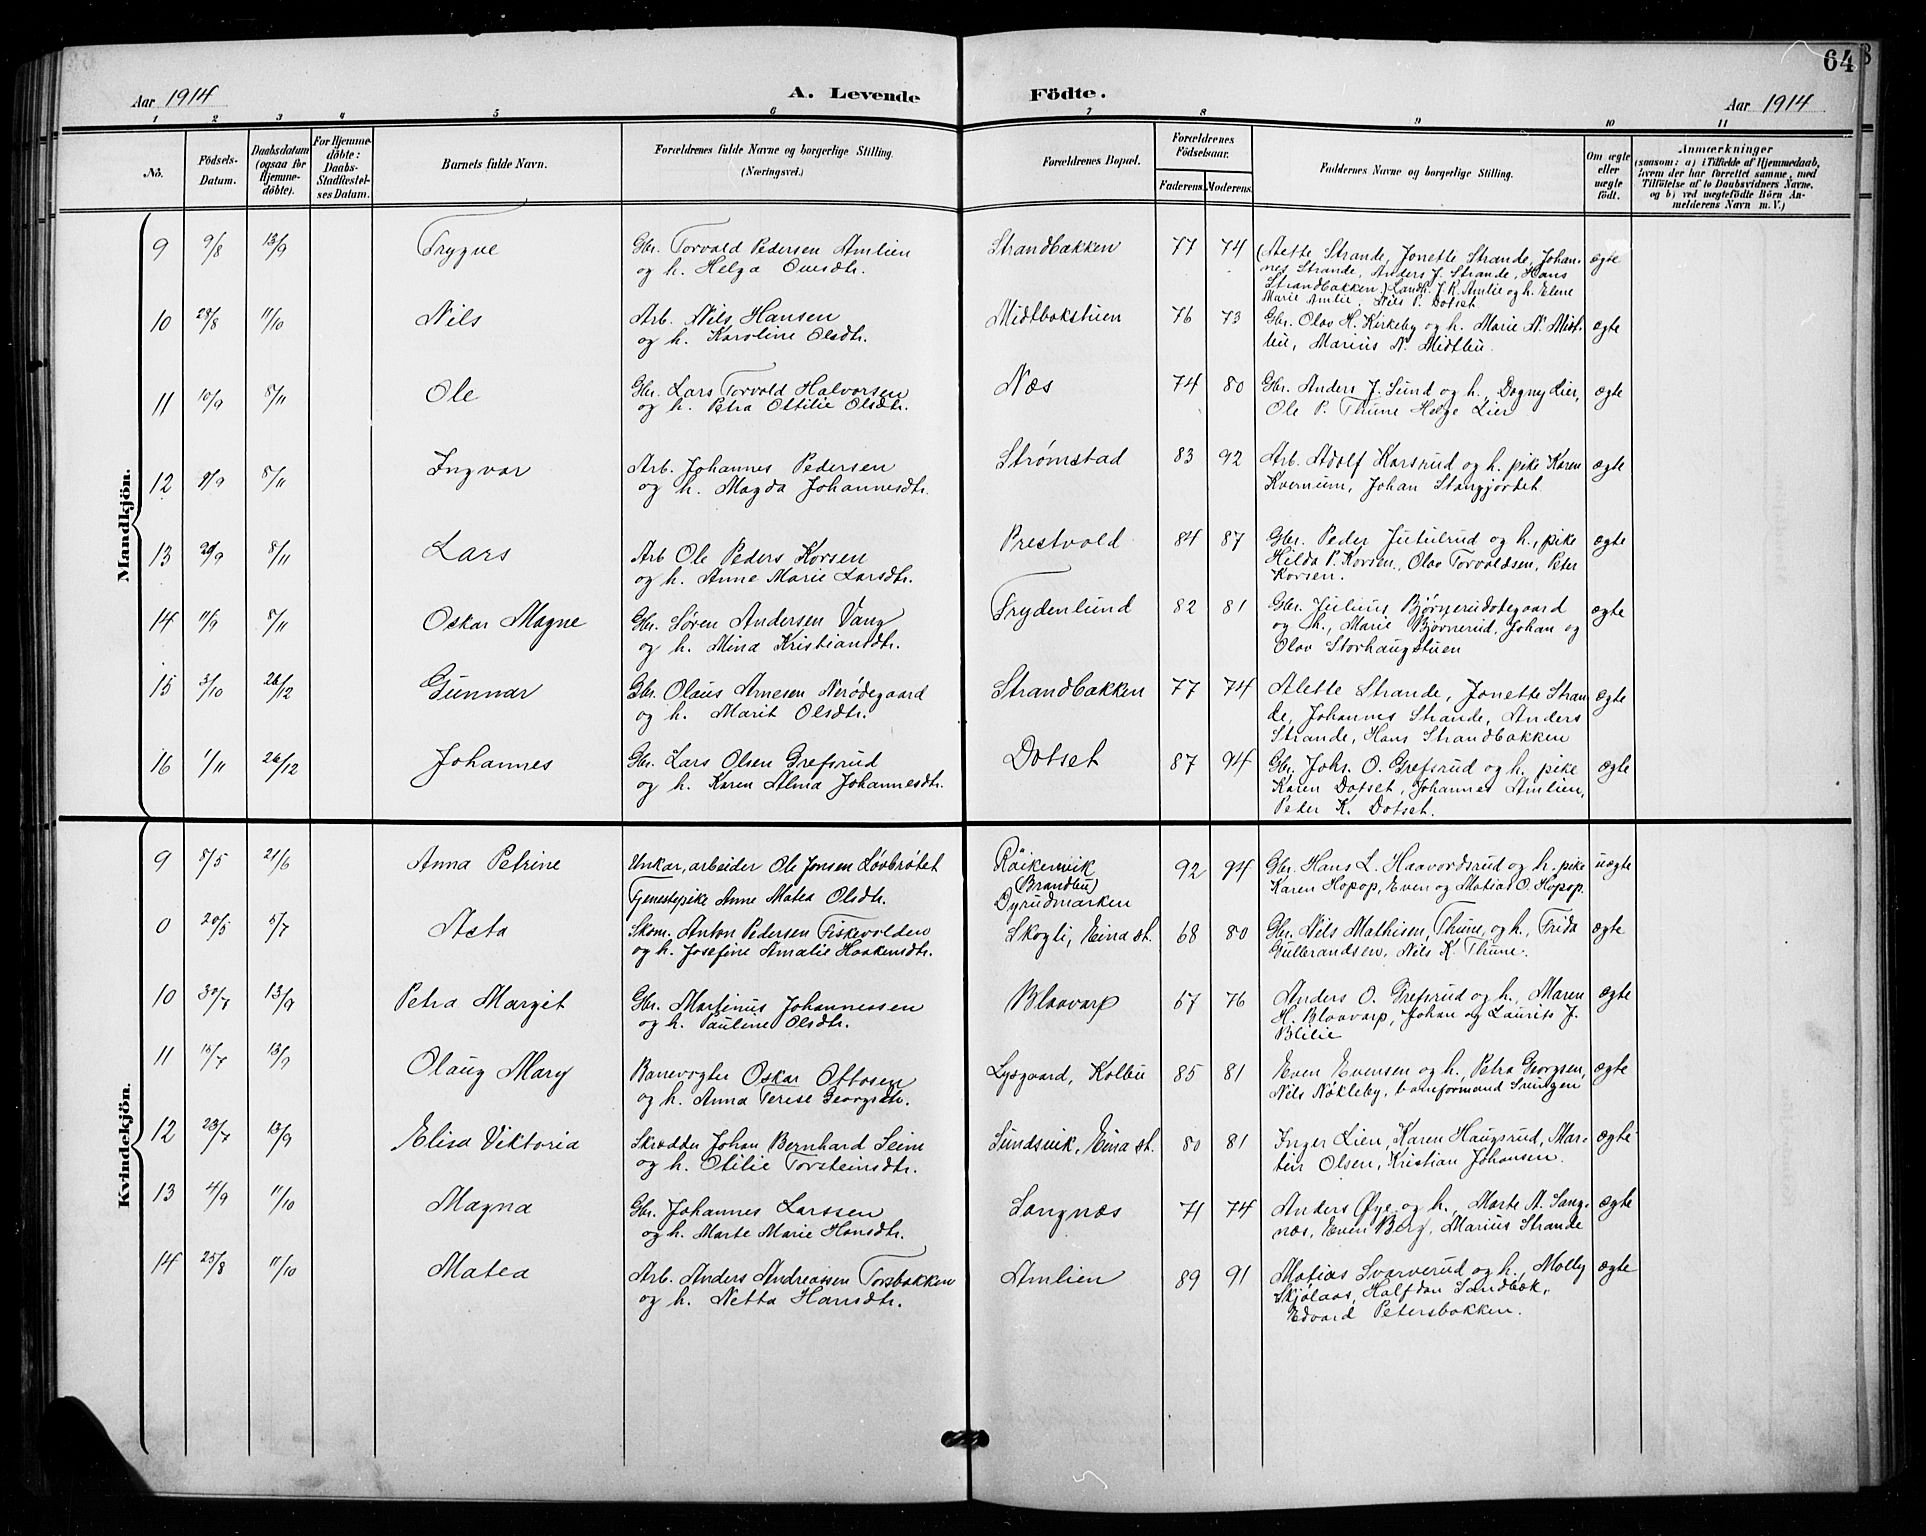 64
Aar 1914
A. Levende
Födte.
Aar 1914
1 2 3 4 5 6 7 8 9 10 11
No.
Födsels-Datum.
Daabsdatum (ogsaa for Hjemmedöbte).
For Hjemmedöbte: Daabs-Stadfæstelses Datum.
Barnets fulde Navn.
Forældrenes fulde Navne og borgerlige Stilling.
(Næringsvei.)
Forældrenes Bopæl.
Forældrenes Födselsaar.
Faderens. Moderens.
Faddernes Navne og borgerlige Stilling.
Om ægte eller uægte födt.
Anmærkninger
(saasom: a) i Tilfælde af Hjemmedaab, hvem der har forrettet samme, med Tilföielse af to Daabsvidners Navne, og b) ved uægtefödte Börn Anmelderens Navn m. V.)
Mandkjön.
9 9/8 13/9 Trygve Gbr. Torvald Pedersen Amlien Strandbakken 77 74 (Alette Strande, Jonette Strande, Johan- ægte
og h. Helga Ouesdtr. nes Strande, Anders J. Strande, Hans
Strandbakken) Landh. J. R. Amlie og h. Elene
Marie Amlie. Nils P. Dotset
10 28/8 11/10 Nils Arb. Nils Hansen Midtbakstuen 76 73 Gbr. Olav H. Kirkeby og h. Marie N. Midt- ægte
og h. Karoline Olsdtr. bu, Marius N. Midtbu.
11 10/9 8/11 Ole Gbr. Lars Torvald Halvorsen Næs 74 80 Gbr. Anders J. Sund og h., Dagny Lier, ægte
og h. Petra Ottilie Olsdtr. Ole P. Thune Helge Lier
12 9/9 8/11 Ingvar Arb. Johannes Pedersen Strømstad 83 92 Arb. Adolf Karsrud og h. pike Karen ægte
og h. Magda Johannesdtr. Kvernum, Johan Stangjortet.
13 29/9 8/11 Lars Arb Ole Peders Korsen Prestvold 84 87 Gbr. Peder Jutulrud og h., pike ægte
og h. Anne Marie Larsdtr. Hilda P. Korsen, Olav Torvaldsen, Peter
Korsen.
14 11/9 8/11 Oskar Magne Gbr. Søren Andersen Vang Frydenlund 82 81 Gbr. Julius Bjørnerudødegaard ægte
og h. Mina Kristiansdtr. og h., Marie Bjørnerud, Johan og
Olav Storhaugstuen
15 3/10 26/12 Gunnar Gbr. Olaus Arnesen Nerødegaard Strandbakken 77 74 Alette Strande, Jonette Stran- ægte
og h. Marit Olsdtr. de, Johannes Strande, Anders
Strande, Hans Strandbakken
16 1/11 26/12 Johannes Gbr. Lars Olsen Grefsrud Dotset 87 94 Gbr. Johs. O. Grefsrud og h. pike ægte
og h. Karen Alma Johannesdtr. Karen Dotset, Johannes Amlien,
Peter K. Dotset.
Kvindekjön.
9 8/5 21/6 Anna Petrine Unkar, arbeider Ole Jonsen Løvbrøtet Røikenvik 92 94 Gbr. Hans L. Haavordsrud og h. pike uægte
(Brandbu)
Tjenestepike Anne Matea Olsdtr. Dyrudmarken Karen Hopop, Even og Matias O. Hopop.
0 20/5 5/7 Asta Skom. Anton Pedersen Fiskevolden Skogli, Eina st. 68 80 Gbr. Nils Mathisen, Thune, og h., Frida ægte
og h. Josefine Amalie Haakensdtr. Gulbrandsen, Nils K. Thune.
10 30/7 13/9 Petra Margit Gbr. Martinus Johannessen Blaavarp 67 76 Anders O. Grefsrud og h., Maren ægte
og h. Pauline Olsdtr. H. Blaavarp, Johan og Laurits J.
Blilie
11 15/7 13/9 Olaug Mary Banevogter Oskar Ottosen Lysgaard, Kolbu 85 81 Even Evensen og h., Petra Georgsen, ægte
og h. Anna Terese Georgsdtr. Nils Nøkleby, banformand Sningen
12 23/7 13/9 Elisa Viktoria Skrædder Johan Bernhard Seim Sundsvik, Eina st. 80 81 Inger Lien, Karen Haugsrud, Mar- ægte
og h. Otilie Torsteinsdtr. tin Olsen, Kristian Johansen.
13 4/9 11/10 Magna Gbr. Johannes Larssen Langnæs 71 74 Anders Øye og h., Marte A. Lang- ægte
og h. Marte Marie Hansdtr. næs, Even Berg, Marius Strande
14 25/8 11/10 Matea Arb. Anders Andreassen Torsbakken Amlien 89 91 Matias Svarverud og h., Molly ægte
og h. Netta Hansdtr. Skjølaas, Halfdan Sandbæk,
Edvard Petersbakken.